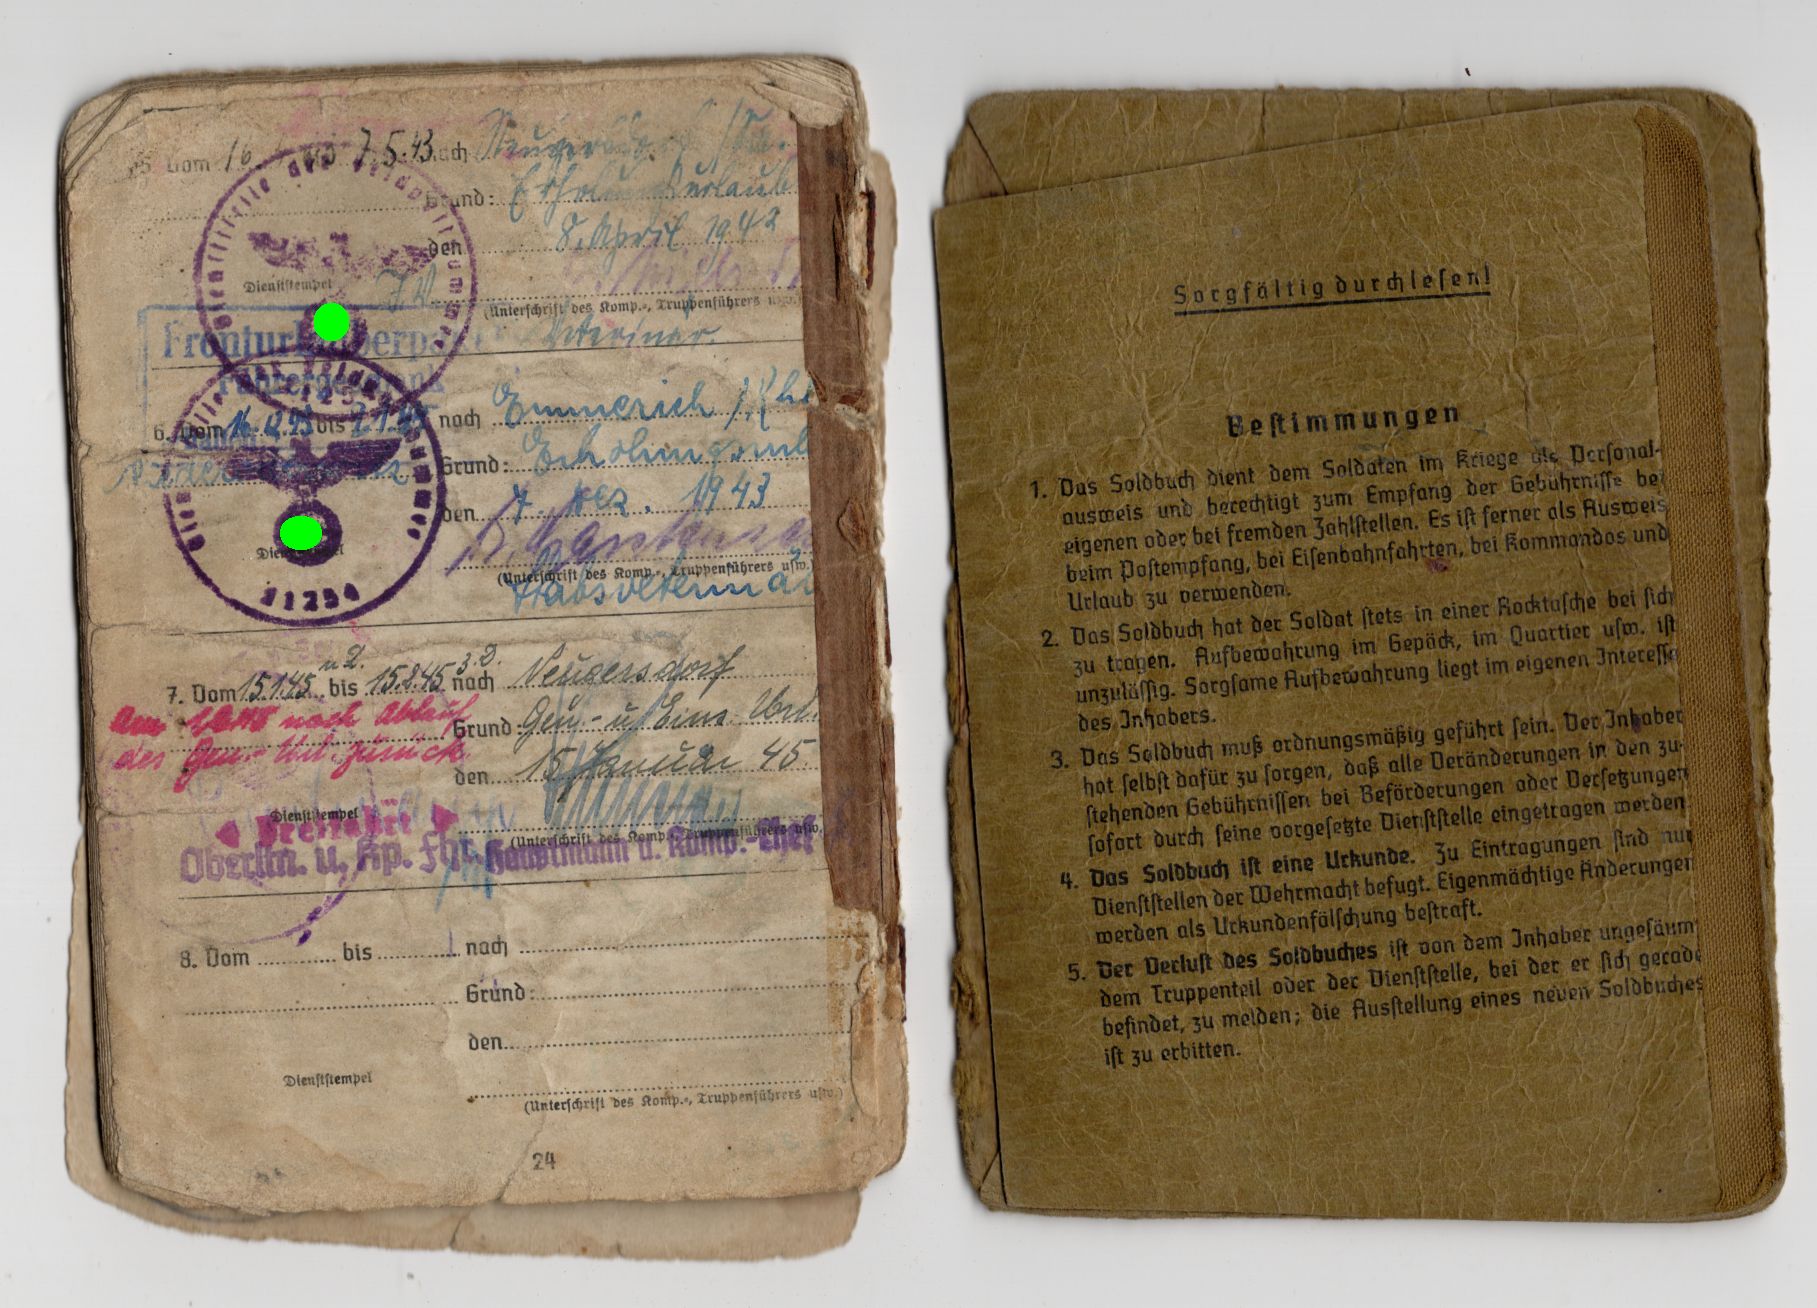 5. Vom 16. bis 7.5.43 nach Neugersdorf /Sa.
Grund: Erholungsurlaub
den 8. April 1943
Dienststempel
(Unterschrift des Komp.-, Truppenführers usw.)
Veterinär.
Dienststelle der Feldpostnummer
Fronturlauberpaket
Führergeschenk
6. Vom 16.12.43 bis nach Emmerich /Rh
Grund: Erholungsurl
den 7. Dez. 1943
Dienststempel
(Unterschrift des Komp.-, Truppenführers usw.)
Stabsveterinär
31254
7. Vom 15.1.45 bis 15.2.45 nach Neugersdorf
u 2. 3.2.
am nach Ablauf
des Gen.-Url. zurück
Grund: Gen.- u. Eins. Url.
den 15. Januar 45.
Dienststempel
(Unterschrift des Komp.-, Truppenführers usw.
Oberltn. u. Kp. Fhr. Hauptmann u. Komp.-Chef
8. Vom bis nach
Grund:
den
Dienststempel
(Unterschrift des Komp.-, Truppenführers usw.)
24
Sorgfältig durchlesen!
Bestimmungen
1. Das Soldbuch dient dem Soldaten im Kriege als Personal-
ausweis und berechtigt zum Empfang der Gebührnisse bei
eigenen oder bei fremden Zahlstellen. Es ist ferner als Ausweis
beim Postempfang, bei Eisenbahnfahrten, bei Kommandos und
Urlaub zu verwenden.
2. Das Soldbuch hat der Soldat stets in einer Rocktasche bei sich
zu tragen. Aufbewahrung im Gepäck, im Quartier usw. ist
unzulässig. Sorgsame Aufbewahrung liegt im eigenen Interesse
des Inhabers.
3. Das Soldbuch muß ordnungsmäßig geführt sein. Der Inhaber
hat selbst dafür zu sorgen, daß alle Veränderungen in den zu-
stehenden Gebührnissen bei Beförderungen oder Versetzungen
sofort durch seine vorgesetzte Dienststelle eingetragen werden
4. Das Soldbuch ist eine Urkunde. Zu Eintragungen sind nur
Dienststellen der Wehrmacht befugt. Eigenmächtige Änderungen
werden als Urkundenfälschung bestraft.
5. Der Verlust des Soldbuches ist von dem Inhaber ungesäumt
dem Truppenteil oder der Dienststelle, bei der er sich gerade
befindet, zu melden; die Ausstellung eines neuen Soldbuches
ist zu erbitten.